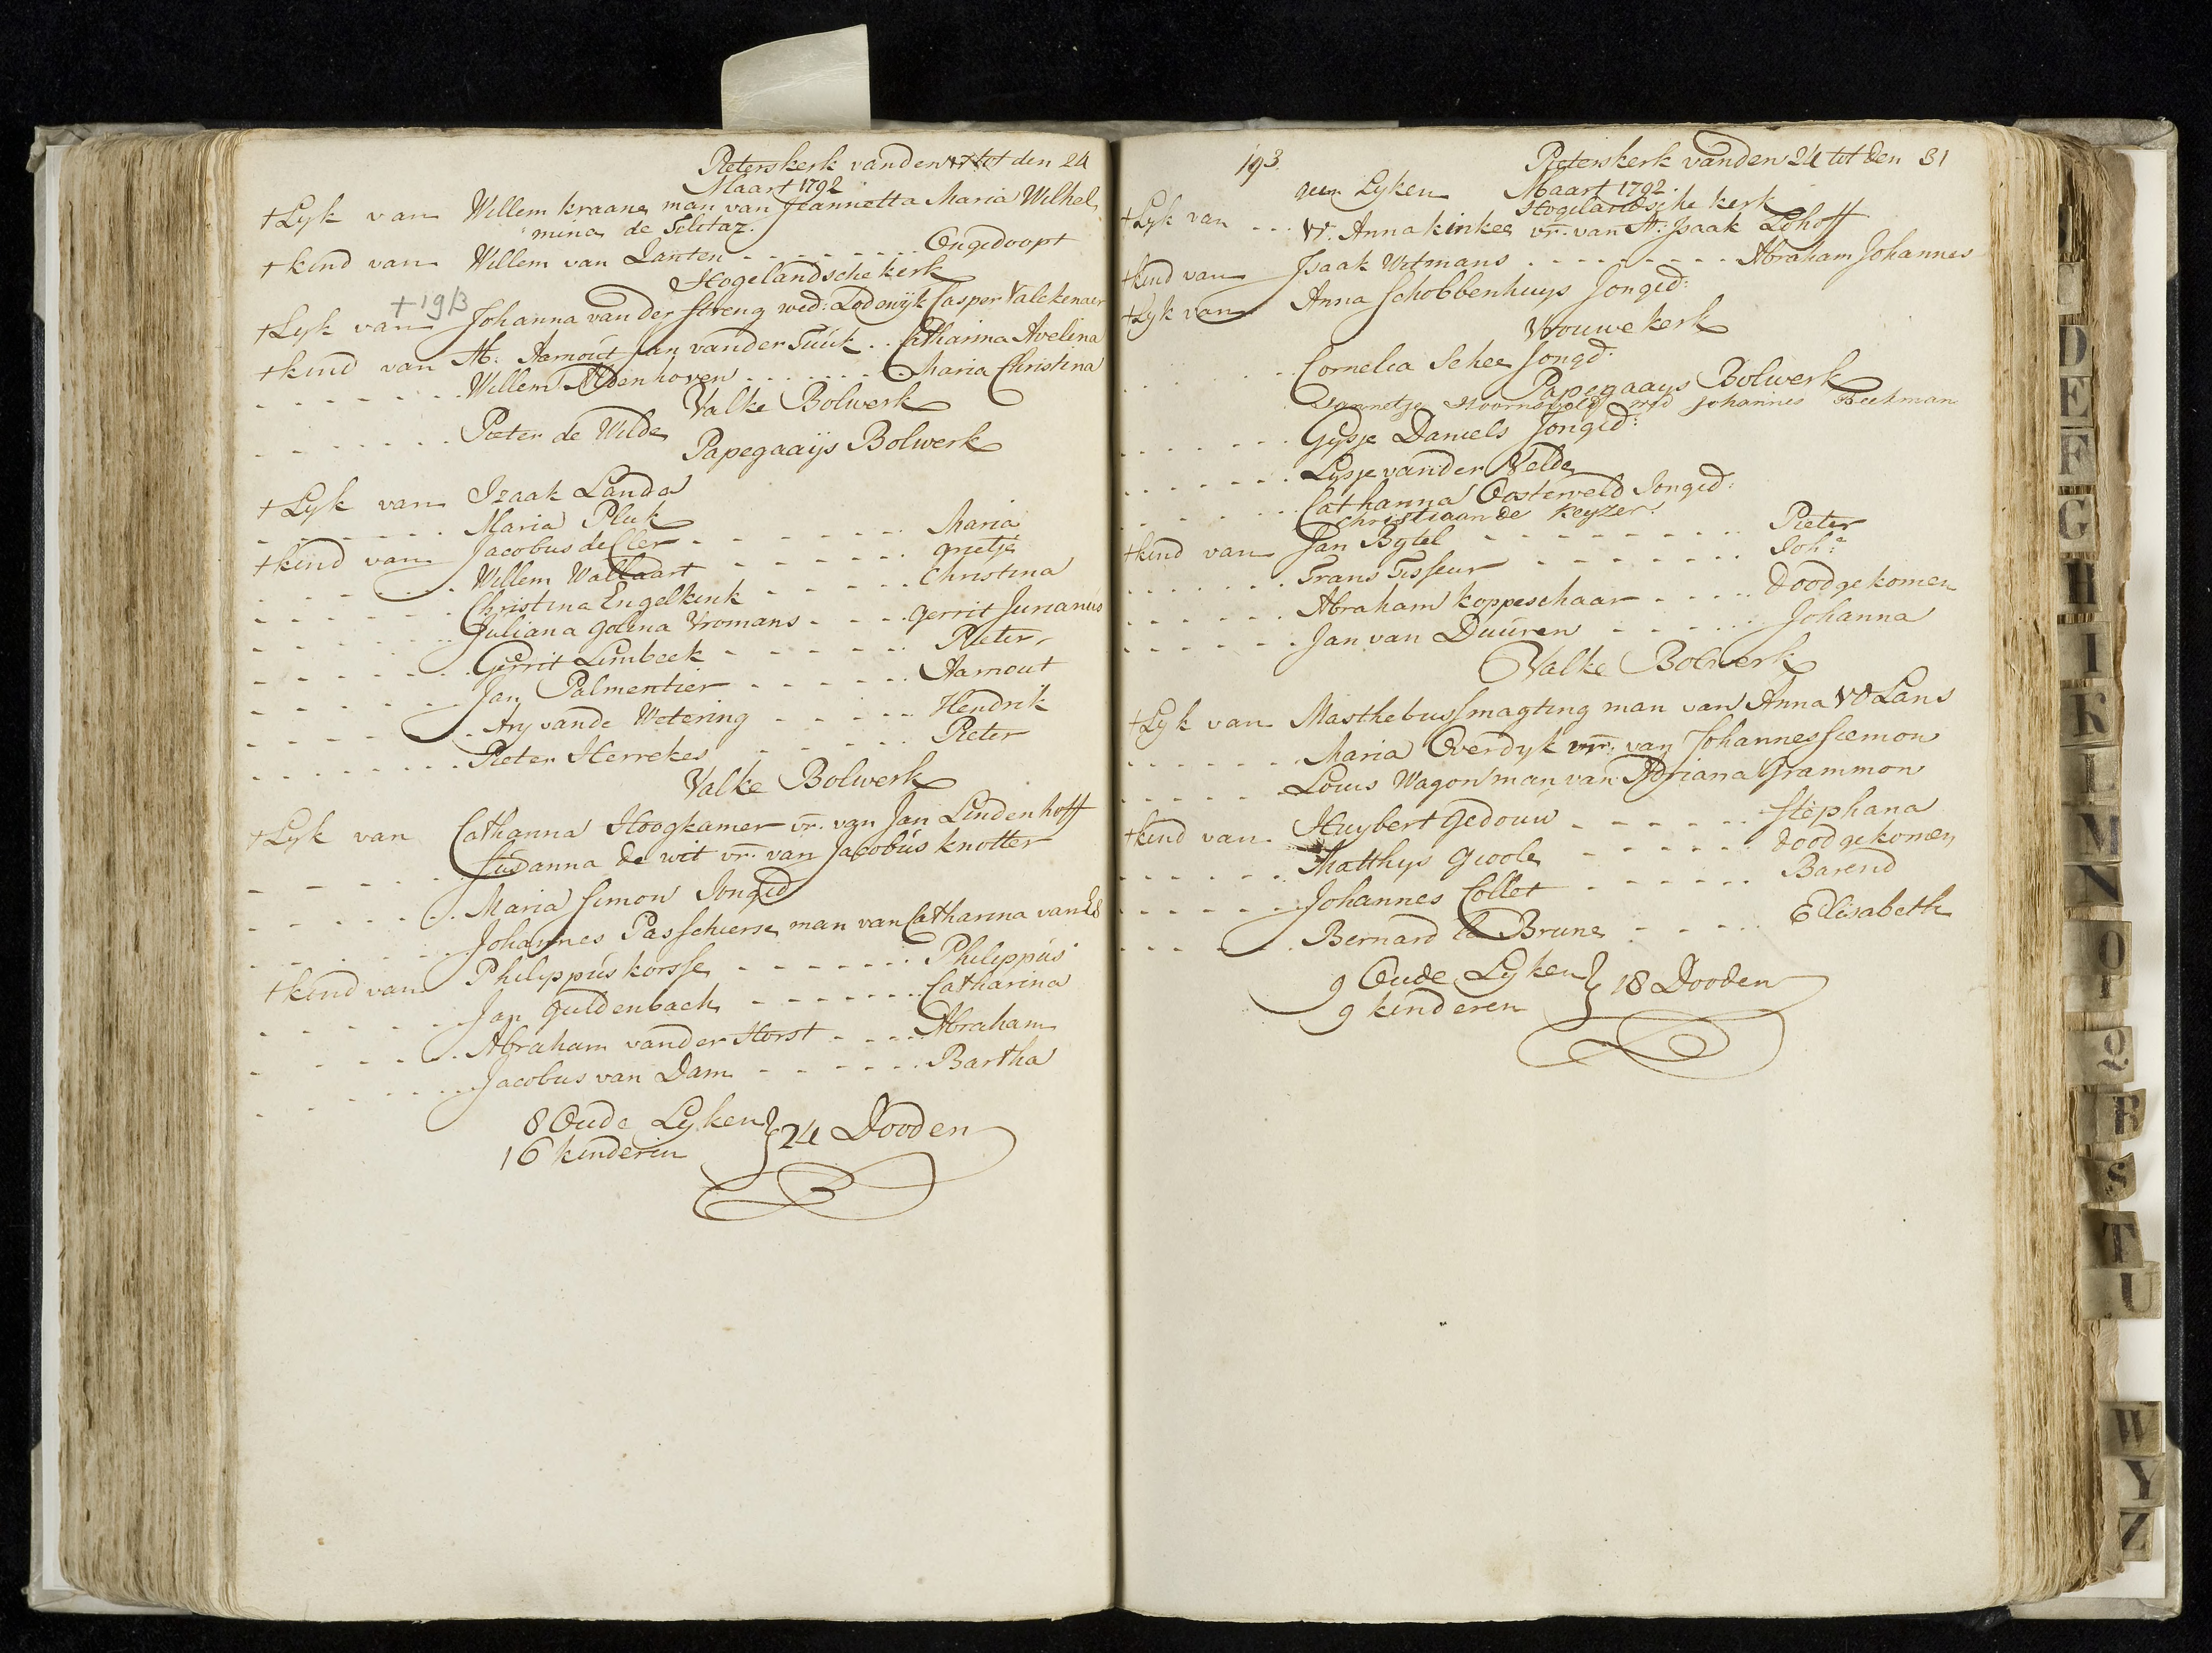 Pieterskerk van den 17 tot den 24
Maart 1792
†Lyk van Willem kraane man van Jeannetta Maria Wilhel
mina de
†kind van Willem van Zanten - - - - - - - - Ongedoopt
Hogelandsche kerk
+19/3
†Lyk van Johanna van der Streng wed: Lodewyk Casper Valckenaer
†kind van M: Aarnout Jan van der Tuuk . . Catharina Avelina
- - - - - - - Willem Aldenhoven - - - - - - - Maria Christina
Valke Bolwerk
- - - - - - Pieter de Wilde
Papegaaijs Bolwerk
†Lyk van Izaak Landa
- - - - - - Maria Pluk
†kind van Jacobus de Cler - - - - - - - Maria
- - - - - - Willem Wallaart - - - - - - grietje
- - - - - - Christina Engelkink - - - - - Christina
- - - - - - Juliana golina Vromans - - - - gerrit Jurianus
- - - - - - Gerrit Limbeek - - - - - - Pieter
- - - - - - Jan Palmentier - - - - - - Aarnout
- - - - - - Ary vande Wetering - - - - - Hendrik
- - - - - - Pieter Herrekes - - - - - - Pieter
Valke Bolwerk
†Lyk van Catharina Hoogkamer vr. van Jan Lindenhoff
- - - - - - Susanna de wit vr. van Jacobus knotter
- - - - - - Maria Simon Jongd
- - - - - - Johannes Passchierse man van Catharina van Es
†kind van Philippus korsse - - - - - - - Philippus
- - - - - - Jan guldenbach - - - - - - - Catharina
- - - - - - Abraham vander Horst - - - - Abraham
- - - - - - Jacobus van Dam - - - - - - Bartha
8 Oude Lyken
16 kinderen } 24 Dooden
193. Pieterskerk van den 24 tot den 31
geen Lyken Maart 1792.
Hogelandsche kerk
†Lyk van - - - Vr. Anna kinkee vr. van A: Isaak Ldhoff
†kind van Isaak Witmans - - - - - - - - - Abraham Johannes
†Lyk van Anna Schobbenhuys Jongd:
Vrouwe kerk
- - - - - Cornelia Schee Jongd:
Papegaays Bolwerk
Jannetje wed Johannes Beekman
- - - - - Gysje Daniels Jongd:
- - - - - Lysje vander Velde
- - - - - Catharina Oosterveld Jongd:
Christiaan de Keyzer
†kind van Jan Bytel - - - - - - - - Pieter
- - - - - Frans Tisseur - - - - - - Joh:a
- - - - - Abraham koppeschaar - - - - - doodgekomen
- - - - - Jan van Duuren - - - - - Johanna
Valke Bolwerk
†Lyk van Masthebus Smagting man van Anna VD Lans
- - - - - Maria Overdyk vr: van Johannes Siemon
- - - - - Louis Wagon man van Adriana Grammon
†kind van Huybert Gedouw - - - - - - Stephana
- - - - - Matthys Gioole - - - - - doodgekomen
- - - - - Johannes Collet - - - - - - Barend
- - - - - Bernard la Brune - - - - - Elisabeth
9 Oude Lyken
9 kinderen } 18 Dooden
D
E
F
G
H
I
K
L
M
N
O
P
Q
R
S
T
U
W
Y
Z